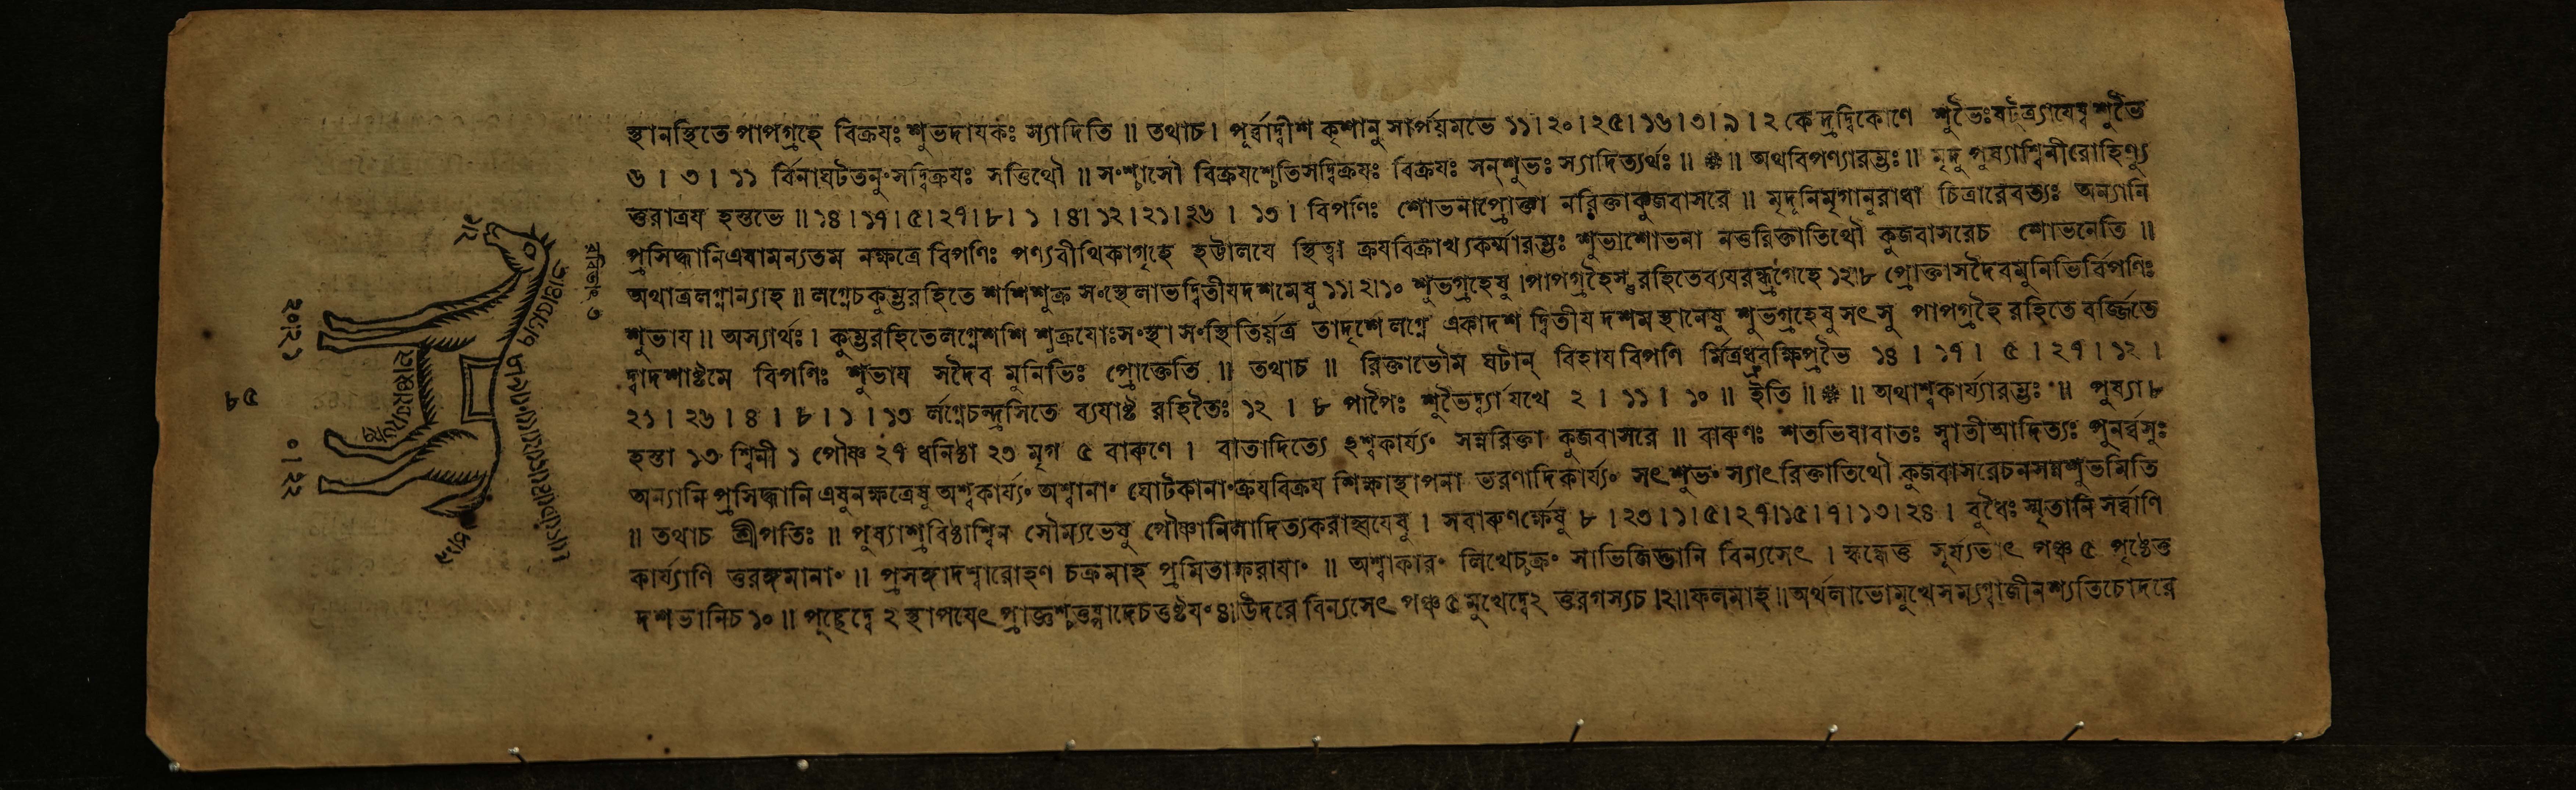 স্থানস্থিতে পাপগ্রহে বিক্রযঃ শুভদাযকঃ স্যাদিতি ॥ তথাচ । পূর্ব্বাদ্বীশ কৃশানু সার্পযমভে ১১।২০।২৫।১৬।৩।৯।২ কেদ্রদ্বিকোণে শুভৈঃষট্ত্র্যাযেষ্বশুভৈ
৬ । ৩ । ১১ র্বিনাঘটতনুংসদ্বিক্রযঃ সত্তিথৌ ॥ সংশ্চাসৌ বিক্রযশ্চেতিসদ্বিক্রযঃ বিক্রযঃ সন্শুভঃ স্যাদিত্যর্থঃ ॥ ॥ অথবিপণ্যারম্ভঃ ॥ মৃদু পুষ্যাশ্বিনীরোহিণ্যু
ত্তরাত্রয হস্তভে ॥ ১৪।১৭।৫।২৭।৮।১।৪।১২।২১।২৬ । ১৩ । বিপণিঃ শোভনাপ্রোক্তা নরিক্তাকুজবাসরে ॥ মৃদূনিমৃগানুরাধা চিত্রারেবত্যঃ অন্যানি
প্রসিদ্ধানিএষামন্যতম নক্ষত্রে বিপণিঃ পণ্যবীথিকাগৃহে হট্টালযে স্থিত্বা ক্রযবিক্রাখ্যকর্ম্মারম্ভঃ শুভাশোভনা নত্তরিক্তাতিথৌ কুজবাসরেচ শোভনেতি ॥
অথাত্রলগ্নান্যাহ ॥ লগ্নেচকুম্ভরহিতে শশিশুক্র সংস্থেলাভদ্বিতীযদশমেষু ১১।২।১০ শুভগ্রহেষু ।পাপগ্রহৈস্তুরহিতেব্যযরন্ধ্রগেহে ১২।৮ প্রোক্তাসদৈবমুনিভির্বিপণিঃ
শুভায ॥ অস্যার্থঃ । কুম্ভরহিতেলগ্নেশশি শুক্রযোঃসংস্থা সংস্থিতির্যত্র তাদৃশে লগ্নে একাদশ দ্বিতীয দশমস্থানেষু শুভগ্রহেষুসৎসু পাপগ্রহৈ রহিতে বর্জ্জিতে
দ্বাদশাষ্টমে বিপণিঃ শুভায সদৈব মুনিভিঃ প্রোক্তেতি ॥ তথাচ ॥ রিক্তাভৌম ঘটান্ বিহাযবিপণি র্মিত্রধ্রুবক্ষিপ্রভৈ ১৪ । ১৭ । ৫ । ২৭ । ১২ ।
২১ । ২৬ । ৪ । ৮ । ১ । ১৩ র্লগ্নেচন্দ্রসিতে ব্যযাষ্ট রহিতৈঃ ১২ । ৮ পাপৈঃ শুভৈর্দ্ব্যাযখে ২ । ১১ । ১০ ॥ ইতি ॥ ॥ অথাশ্বকার্য্যারম্ভঃ ॥ পুষ্যা ৮
হস্তা ১৩ শ্বিনী ১ পৌষ্ণ ২৭ ধনিষ্ঠা ২৩ মৃগ ৫ বারুণে । বাতাদিত্যে হশ্বকার্য্যং সন্নরিক্তা কুজবাসরে ॥ বারুণঃ শতভিষাবাতঃ স্বাতীআদিত্যঃ পুনর্ব্বসুঃ
অন্যানি প্রসিদ্ধানি এষুনক্ষত্রেষু অশ্বকার্য্যং অশ্বানাং ঘোটকানাংক্রযবিক্রয শিক্ষাস্থাপনা ভরণাদিকার্য্যং সৎশুভং স্যাৎ রিক্তাতিথৌ কুজবাসরেচনসন্নশুভমিতি
॥ তথাচ শ্রীপতিঃ ॥ পুষ্যাশ্রবিষ্ঠাশ্বিন সৌম্যভেষু পৌষ্ণানিলাদিত্যকরাহ্বযেষু । সবারুণর্ক্ষেষু ৮।২৩।১।৫।২৭।১৫।৭।১৩।২৪ । বুধৈঃ স্মৃতানি সর্ব্বাণি
কার্য্যাণি ত্তরঙ্গমানাং ॥ প্রসঙ্গাদশ্বারোহণ চক্রমাহ প্রমিতাক্ষরাযাং ॥ অশ্বাকারং লিখেচ্চক্রং সাভিজিত্তানি বিন্যসেৎ । স্কন্ধেত্ত সূর্য্যভাৎ পঞ্চ ৫ পৃষ্ঠেত্ত
দশভানিচ ১০ ॥ পুচ্ছেদ্বে ২ স্থাপযেৎ প্রাজ্ঞশ্চত্তষ্পাদেচত্তষ্টযং ৪।উদরে বিন্যসেৎ পঞ্চ ৫ মুখেদ্বে২ ত্তরগস্যচ ।২॥ফলমাহ ॥অর্থলাভোমুখেসম্যগ্বাজীনশ্যতিচোদরে
৮৫